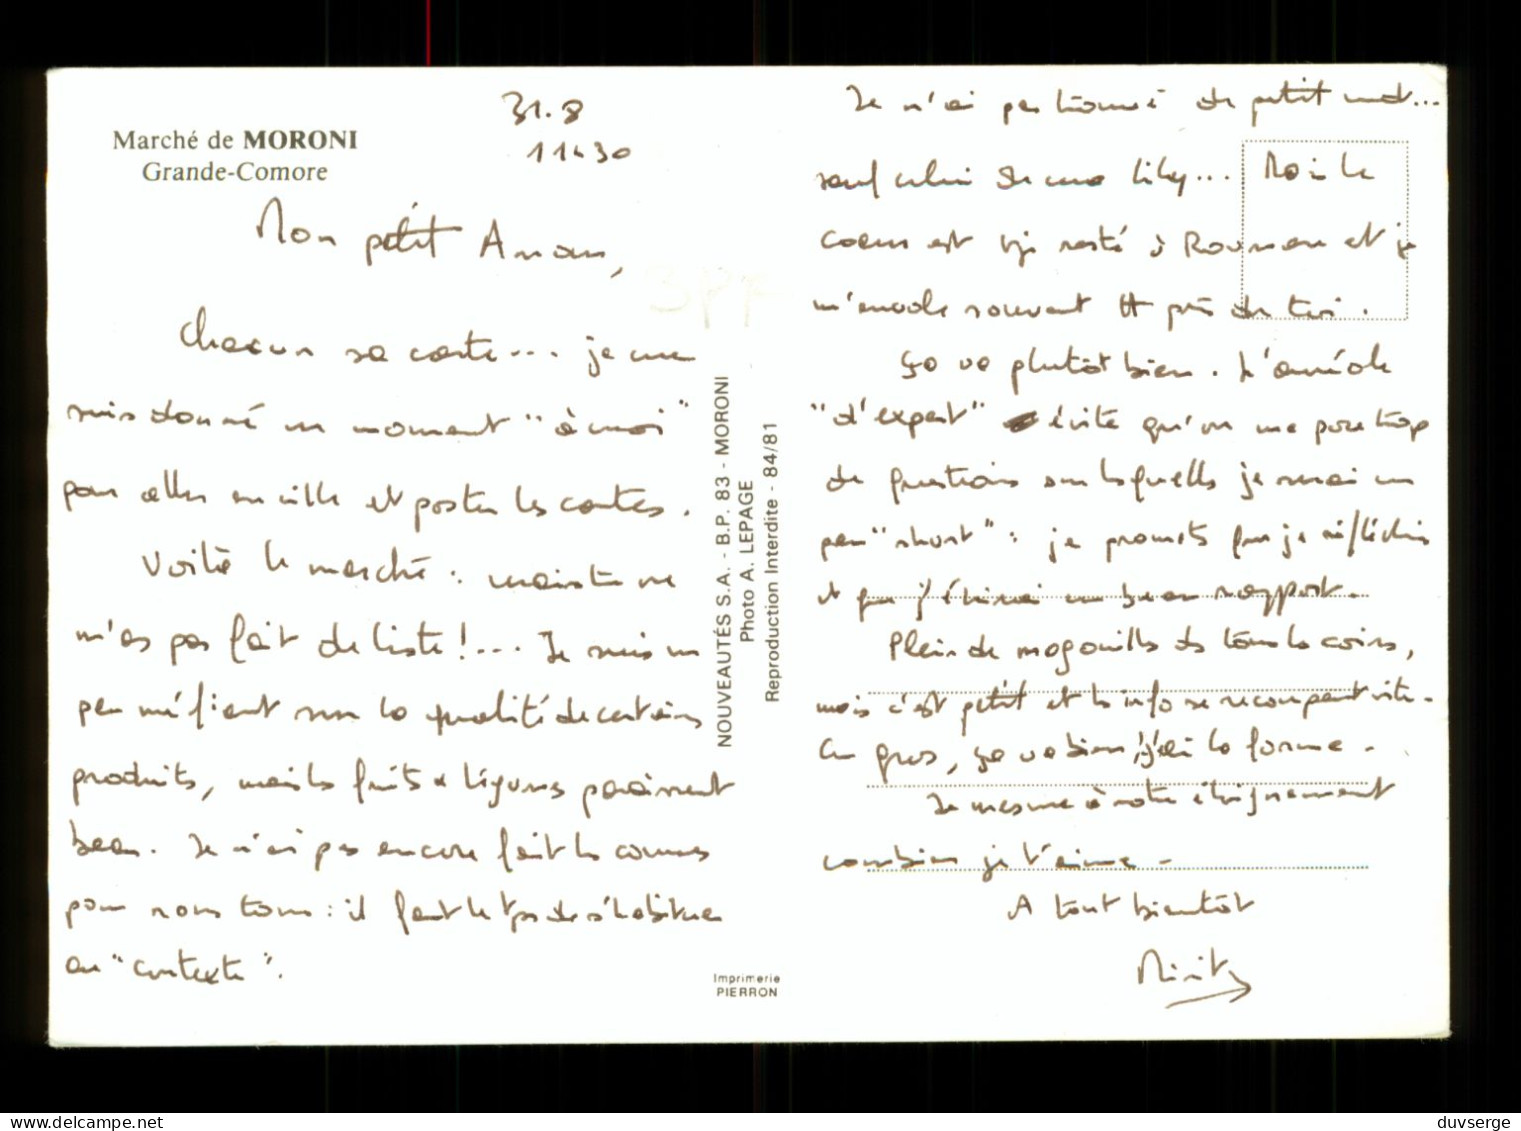 Marché de MORONI
Grande-Comore
31.8
11h30
Mon petit Aman,
Chacun sa carte... je me
suis donné un moment "à moi"
pour aller en ville et poster les cartes.
Voilà le marché : mais tu ne
m'as pas fait de liste !... Je suis un
peu méfiant sur la qualité de certains
produits, mais les fruits & légumes paraissent
beau. Je n'ai pas encore fait les courses
pour nous tous : il faut le tps de s'habituer
au "contexte".
NOUVEAUTÉS S.A. - B.P. 83 - MORONI
Photo A. LEPAGE
Reproduction Interdite - 84/81
Imprimerie
PIERRON
Je n'ai pas trouvé de petit mot...
sauf celui de ma Lily... Moi le
coeur est resté à et je
m'envole souvent tt près de toi.
ça va plutôt bien. L'auréole
"d'expert" évite qu'on me pose trop
de questions sur lesquelles je serai un
peu "short" : je promets que je réfléchis
et que j'écrirai un beau rapport.
Plein de magouilles ds tous les coins,
mais c'est petit et les info se recoupent vite.
En gros, ça va bien, j'ai la forme.
Je mesure à notre éloignement
combien je t'aime.
A tout bientôt